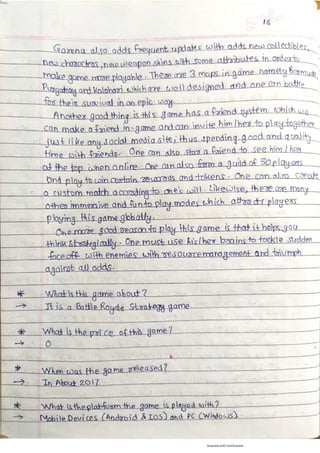 16
Garena also adds frequent updates with adds new collectibles,
new charactres, new weapon skins with some attributes in order to
make game more playable. There are 3 maps in game namely Bermuda,
Purgatory and Kalahari which are well designed and one can battle
for their survival in an epic way.
Another good thing is this game has a friend system which we
can make a friend in-game and can invite him/her to play together
just like any social media site, thus spending good and quality
time with friends. One can also star a friend to see him/her
at the top when online. One can also form a guild of 50 players
and play to win certain rewards and tokens. One can also create
a custom match according to one's will. Likewise, there are many
other immersive and fun to play modes which attracts players
playing this game globally.
One more good reason to play this game is that it helps you
think strategically. One must use his/her brains to tackle sudden
faceoff with enemies with resource management and triumph
against all odds.
* What is this game about?
→ It is a Battle Royale Strategy game.
* What is the price of this game?
→ 0
* When was the game released?
→ In About 2017.
* What is the platform the game is played with?
→ Mobile Devices (Android & IOS) and PC (Windows).
Scanned with CamScanner